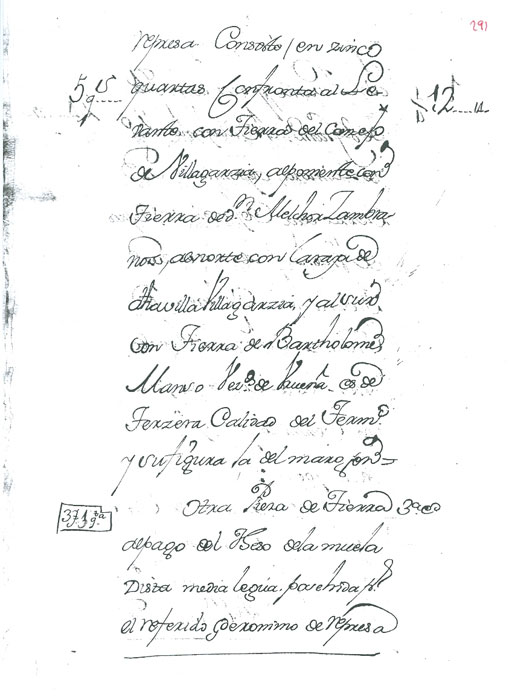 291
represa Consiste / en zinco
5 q.s ..... quartas Confronta al Le- 12
vante con Tierra del Conzejo
de Villagarzia, alponiente con
Tierra de D.n Melchor Zambra
no, alnorte con la raya de
dha villa Villagarzia, y al sur
con Tierra de Bartholome
Manso Vez.o de es de
Terzera Calidad del Term.o
y su figura la del marg.on =
Otra Pieza de Tierra 3.a
alpago del Teso dela muela
Dista media legua, poseehida p.r
el referido Geronimo de represa